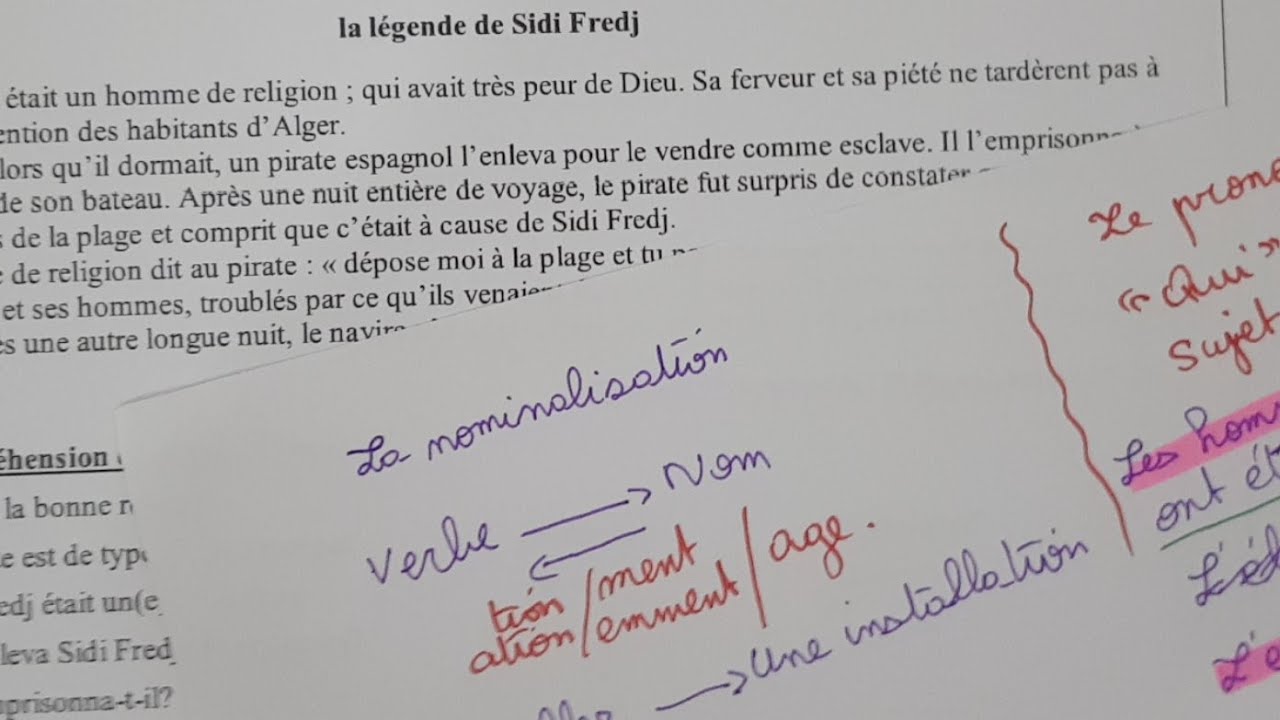 la légende de Sidi Fredj
était un homme de religion ; qui avait très peur de Dieu. Sa ferveur et sa piété ne tardèrent pas à
ention des habitants d'Alger.
lors qu'il dormait, un pirate espagnol l'enleva pour le vendre comme esclave. Il l'emprisonna
de son bateau. Après une nuit entière de voyage, le pirate fut surpris de constater
s de la plage et comprit que c'était à cause de Sidi Fredj.
e de religion dit au pirate : « dépose moi à la plage et tu
et ses hommes, troublés par ce qu'ils venaie
es une autre longue nuit, le navire
éhension
la bonne r
e est de type
edj était un(e
leva Sidi Fred
prisonna-t-il?
La nominalisation
Verbe → Nom
←
tion/ment
ation/emment/age.
→ Une installation
Le prono
« Qui »
Sujet
Les hom
ont ét
L'éd
L'é